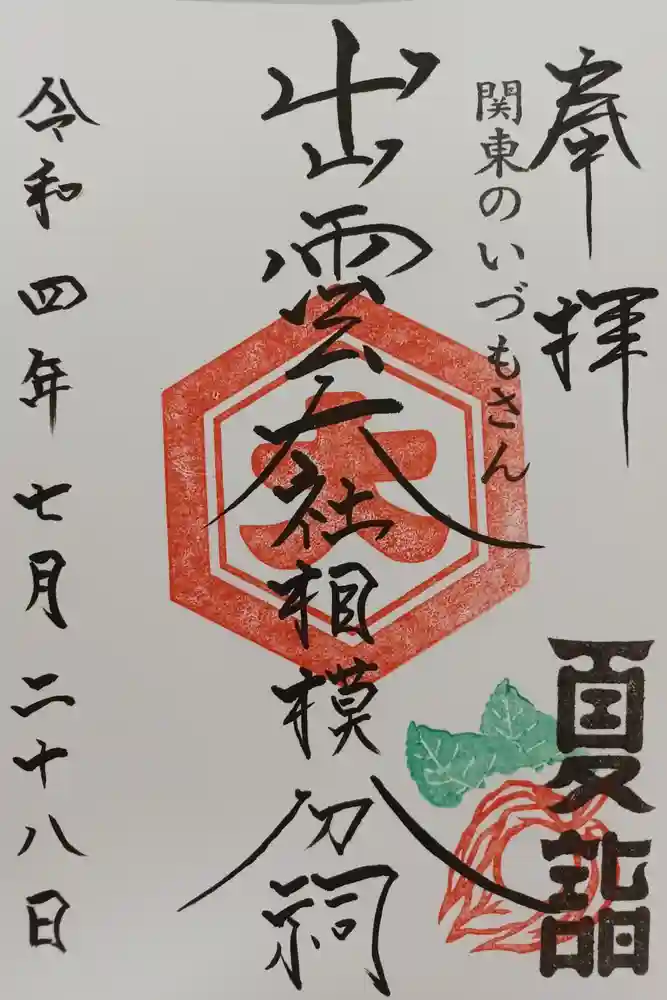 奉拝
関東のいづもさん
夏詣
出雲大社相模分祠
大
令和四年七月二十八日